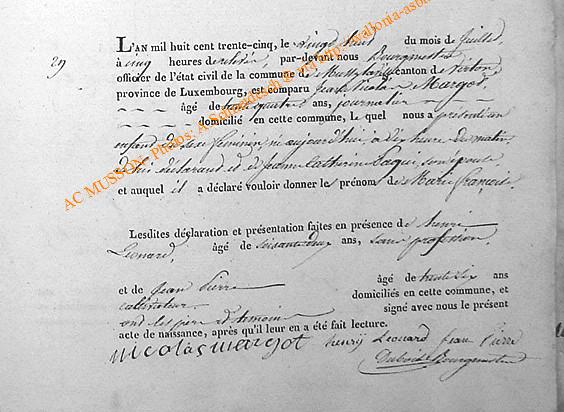 29
L'AN mil huit cent trente-cinq, le vingt huit du mois de juillet,
à cinq heures de relevée, par-devant nous Bourgmestre
officier de l'état civil de la commune de Mussy canton de Virton
province de Luxembourg, est comparu Jean Nicolas Margot,
âgé de trente quatre ans, journalier
domicilié en cette commune, Lequel nous a présenté un
enfant de sexe féminin, né aujourd'hui, à heure du matin,
de lui déclarant et de Jeanne Catherine son épouse
et auquel il a déclaré vouloir donner les prénom de Marie françoise.
Lesdites déclaration et présentation faites en présence de henri
Léonard, âgé de soixante deux ans, sans profession,
et de Jean Pierre âgé de trente six ans
cultivateur domiciliés en cette commune, et
ont les père et témoins signé avec nous le présent
acte de naissance, après qu'il leur en a été fait lecture.
nicolas margot henry Leonard Jean Pierre
Dubois Bourgmestre
AC MUSSON; Photos: A.